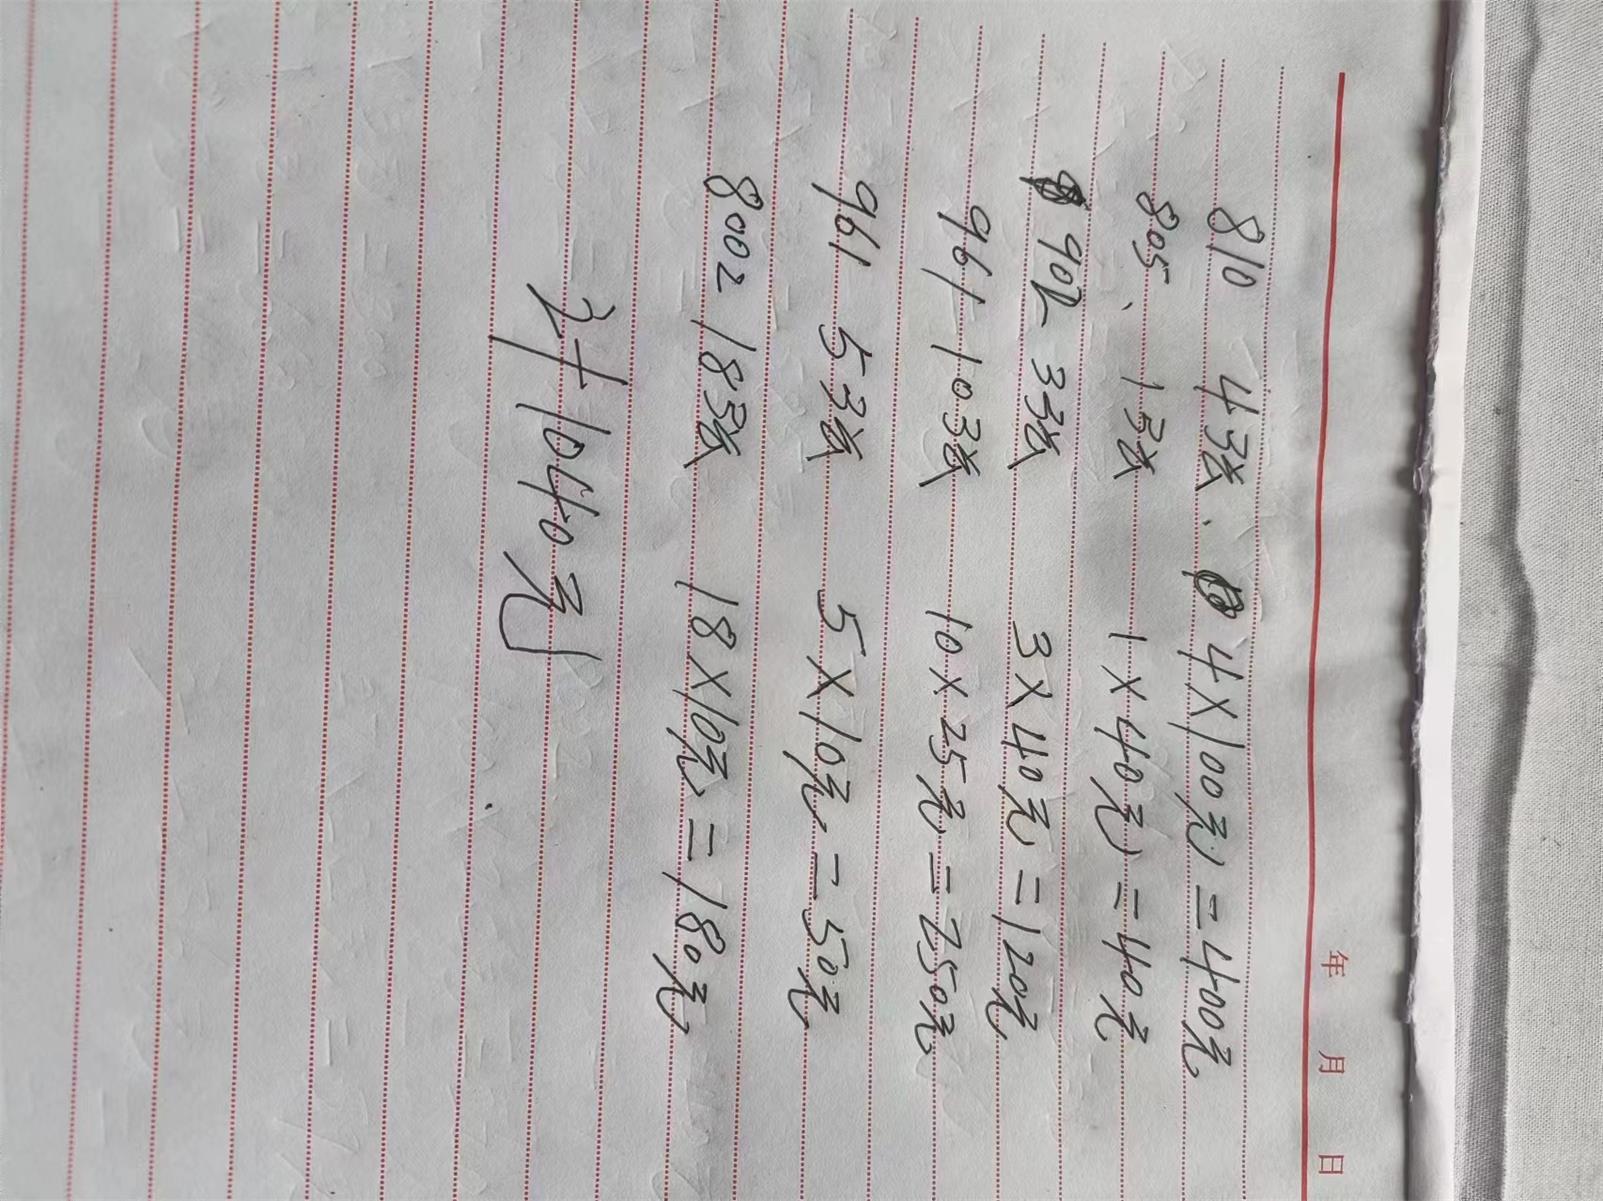 年 月 日
810 4张. 4×100元=400元
805、 1张 1×40元=40元
902 3张 3×40元=120元
961 10张 10×25元=250元
961 5张 5×10元=50元
8002 18张 18×10元=180元
计1040元